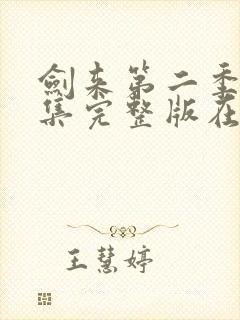 劍来第二季
集完整版在
王慧婷